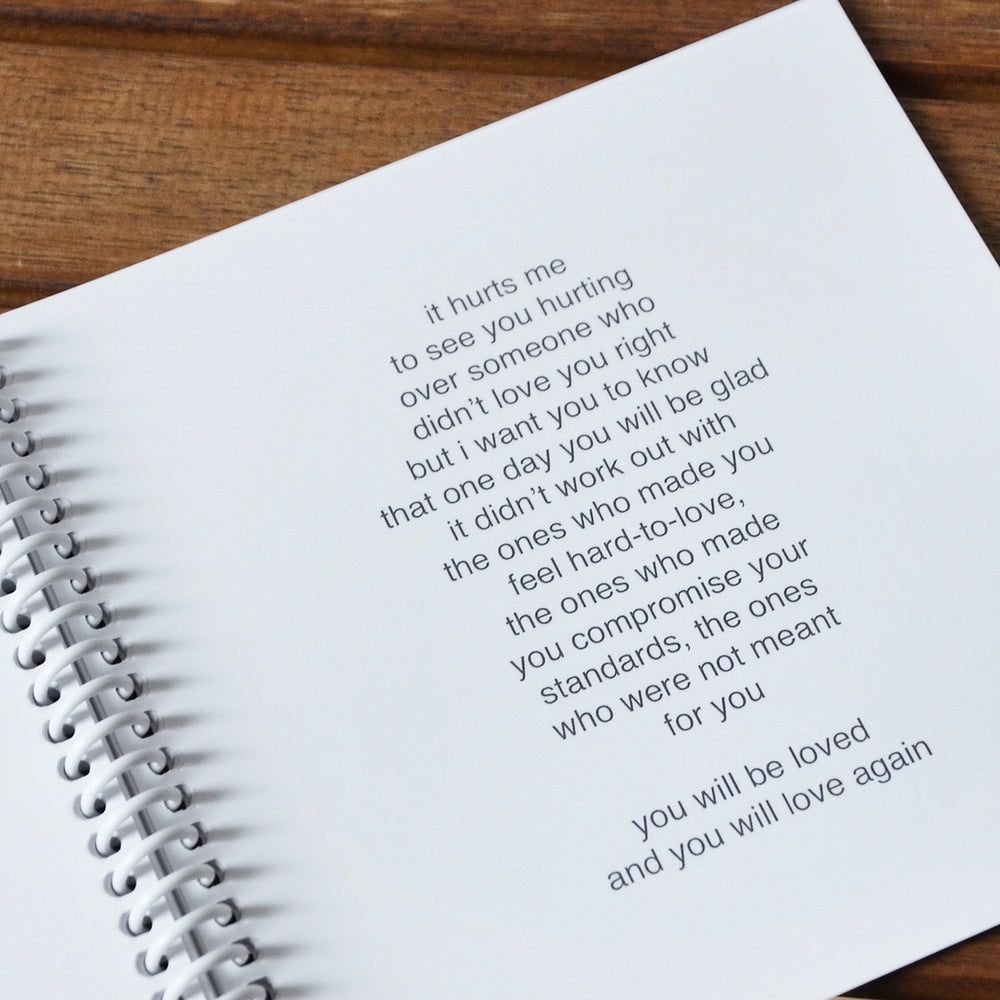 it hurts me
to see you hurting
over someone who
didn't love you right
but i want you to know
that one day you will be glad
it didn't work out with
the ones who made you
feel hard-to-love,
the ones who made
you compromise your
standards, the ones
who were not meant
for you
you will be loved
and you will love again